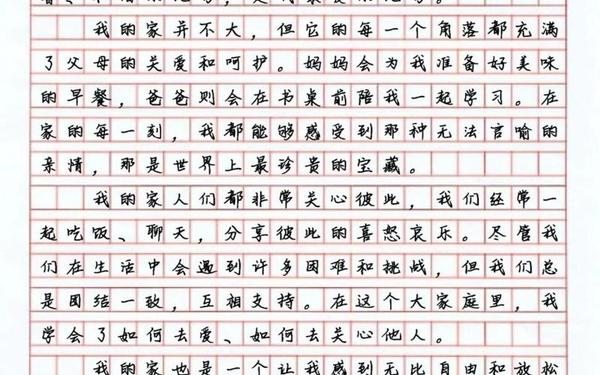 我的家并不大，但它的每一个角落都充满
了父母的关爱和呵护。妈妈会为我准备好美味
的早餐，爸爸则会在书桌前陪我一起学习。在
家的每一刻，我都能够感受到那种无法言喻的
亲情，那是世界上最珍贵的宝藏。
我的家人们都非常关心彼此，我们经常一
起吃饭、聊天，分享彼此的喜怒哀乐。尽管我
们在生活中会遇到许多困难和挑战，但我们总
是团结一致，互相支持。在这个大家庭里，我
学会了如何去爱、如何去关心他人。
我的家也是一个让我感到无比自由和放松